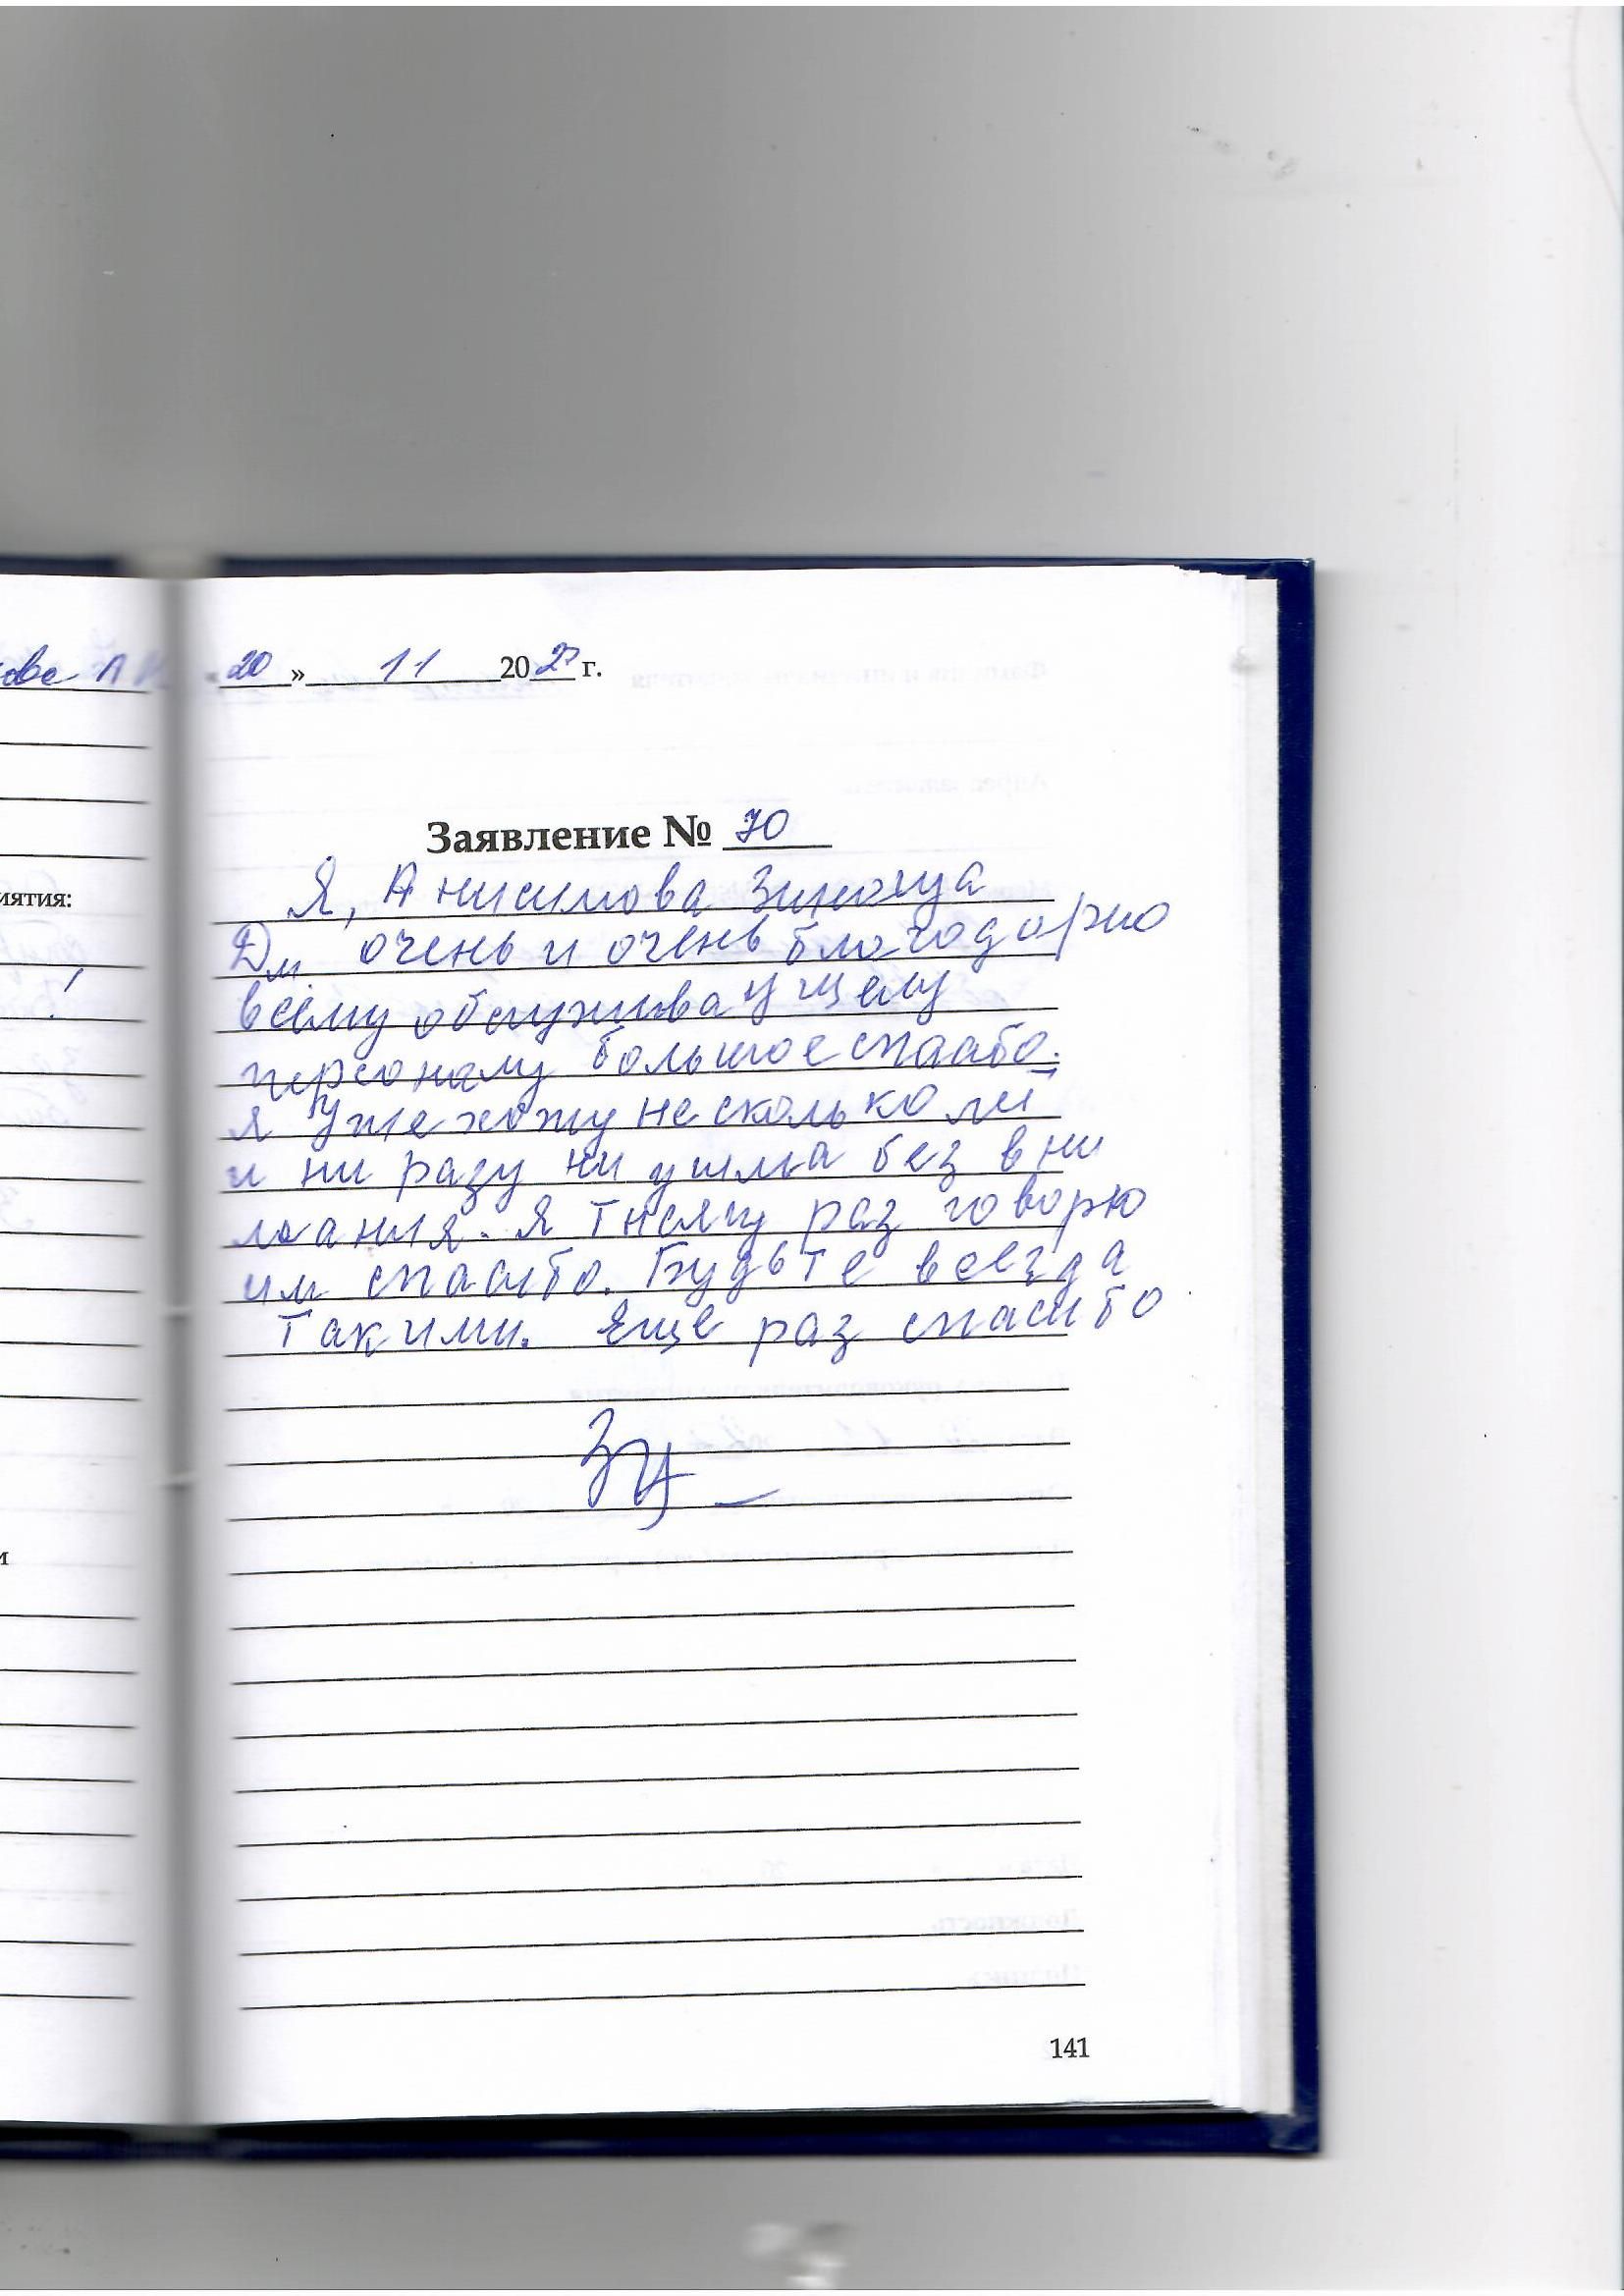 «20» 11 202 г.
иятия:
Заявление № 70
Я, Анисимова Зинаида
Дм очень и очень благодорно
всему обслуживаущему
персоналу большое спасибо.
я уже хожу несколько ле
и ни разу ни ушла без вни
мания. я тысячу раз говорю
им спасибо. Будьте всегда
такими. Еще раз спасибо
и
141